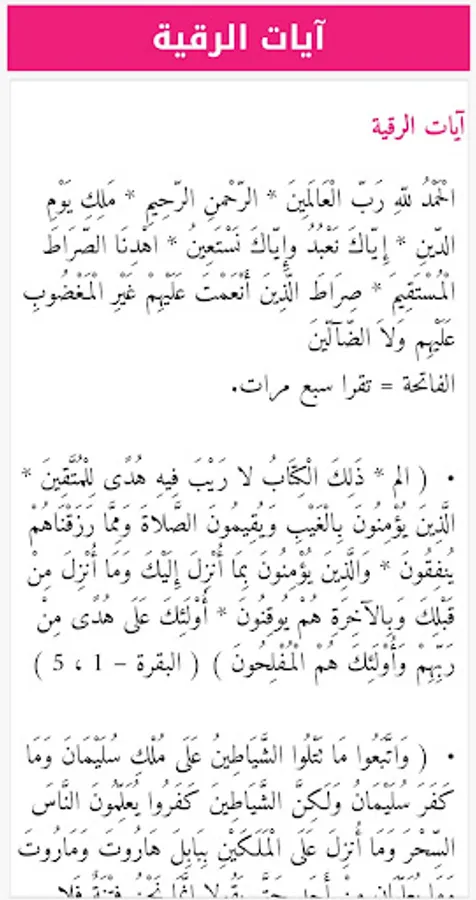 آيات الرقية
آيات الرقية
الْحَمْدُ للّهِ رَبِّ الْعَالَمِينَ * الرَّحْمنِ الرَّحِيمِ * مَلِكِ يَوْمِ
الدِّينِ * إِيَّاكَ نَعْبُدُ وإِيَّاكَ نَسْتَعِينُ * اهْدِنَا الصِّرَاطَ
الْمُسْتَقِيمَ * صِرَاطَ الَّذِينَ أَنْعَمْتَ عَلَيْهِمْ غَيْرِ الْمَغْضُوبِ
عَلَيْهِم وَلاَ الضَّآلِّينَ
الفاتحة = تقرا سبع مرات.
• ( الم * ذَلِكَ الْكِتَابُ لا رَيْبَ فِيهِ هُدًى لِلْمُتَّقِينَ *
الَّذِينَ يُؤْمِنُونَ بِالْغَيْبِ وَيُقِيمُونَ الصَّلاةَ وَمِمَّا رَزَقْنَاهُمْ
يُنفِقُونَ * وَالَّذِينَ يُؤْمِنُونَ بِمَا أُنْزِلَ إِلَيْكَ وَمَا أُنْزِلَ مِنْ
قَبْلِكَ وَبِالآخِرَةِ هُمْ يُوقِنُونَ * أُوْلَئِكَ عَلَى هُدًى مِنْ
رَبِّهِمْ وَأُوْلَئِكَ هُمْ الْمُفْلِحُونَ ) ( البقرة – 1 ، 5 )
• ( وَاتَّبَعُوا مَا تَتْلُوا الشَّيَاطِينُ عَلَى مُلْكِ سُلَيْمَانَ وَمَا
كَفَرَ سُلَيْمَانُ وَلَكِنَّ الشَّيَاطِينَ كَفَرُوا يُعَلِّمُونَ النَّاسَ
السِّحْرَ وَمَا أُنزِلَ عَلَى الْمَلَكَيْنِ بِبَابِلَ هَارُوتَ وَمَارُوتَ
وَمَا يُعَلِّمَانِ مِنْ أَحَدٍ حَتَّى يَقُولا إِنَّمَا نَحْنُ فِتْنَةٌ فَلا